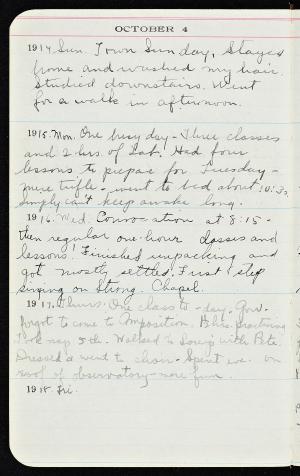 OCTOBER 4
1914 Sun. Town Sunday, Stayed
home and washed my hair.
Studied downstairs. Went
for a walk in afternoon.
1915. Mon. One busy day - Three classes
and 2 hrs. of Lab. Had four
lessons to prepare for Tuesday -
mere trifle - went to bed about 10:30.
Simply can't keep awake long.
1916. Wed. Convocation at 8:15 -
then regular one-hour classes and
lessons! Finished unpacking and
got mostly settled. First step
singing on Strong. Chapel.
1917. Thurs. One class to-day. Gov.
forgot to come to Composition. practicing
Took nap 5th. Walked to with Pete.
Dressed & went to choir. Spent eve. on
roof of observatory - more fun.
1918. Fri.